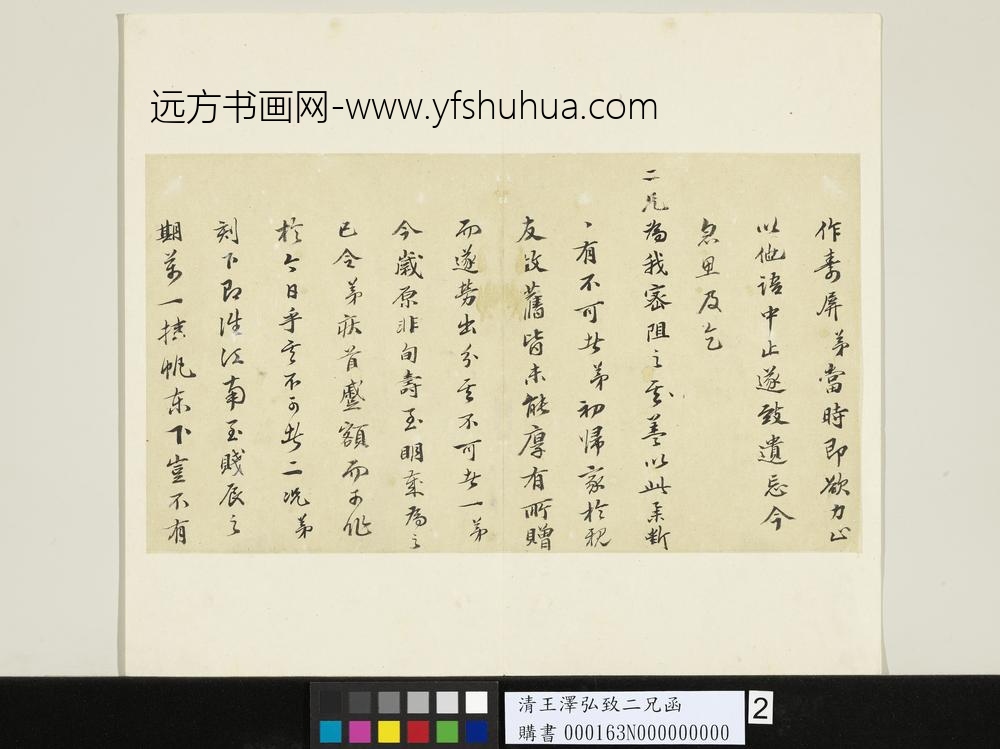 远方书画网-www.yfshuhua.com
作壽屏弟當時即欲力止
以他語中止遂致遺忘今
忽思及乞
二兄為我寢阻之其善以此事斷
有不可者弟初歸家於親
友故舊皆未能厚有所贈
而遂勞出分其不可者一弟
今歲原非旬壽至明歲為之
已令弟疾首蹙額而可作
於今日乎其不可者二況弟
刻下即往江南至賤辰之
期萬一掛帆東下豈不有
清王澤弘致二兄函
購書 000163N000000000
2